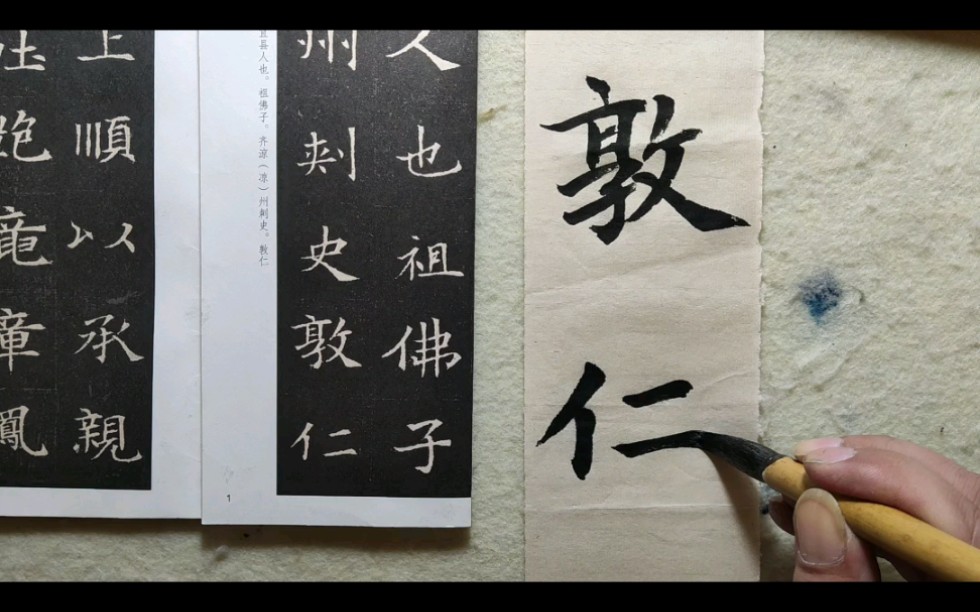 敦仁
人也祖佛子
州刺史敦仁
宜县人也。祖佛子，齐涼（凉）州刺史。敦仁
1
上順以承親